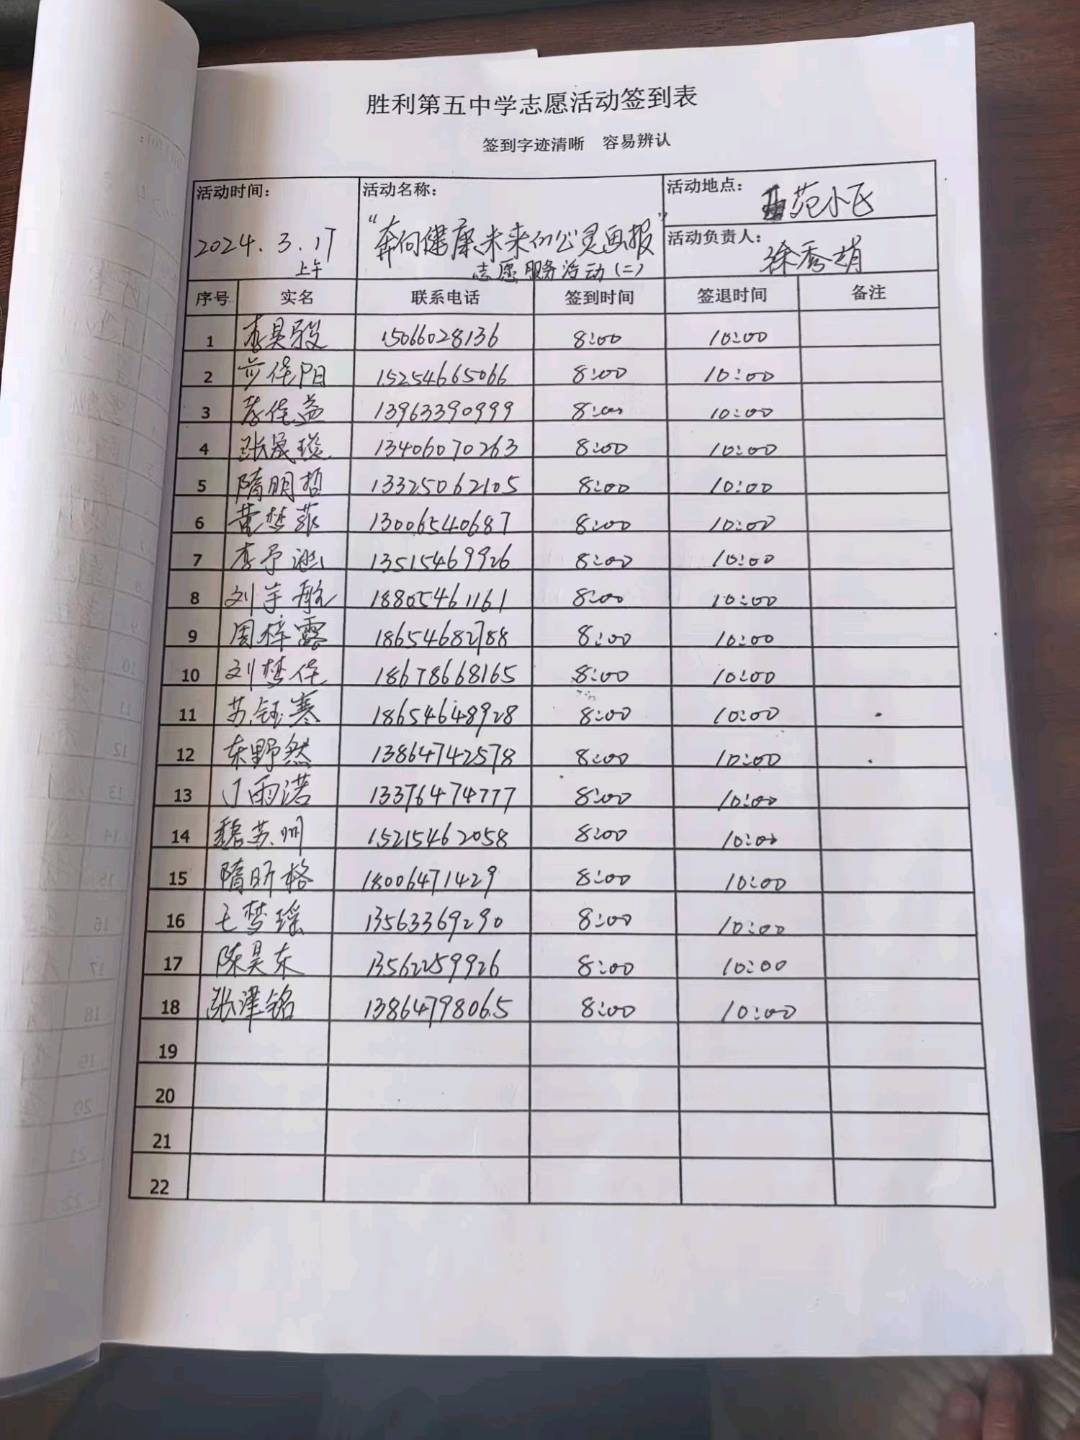 胜利第五中学志愿活动签到表
签到字迹清晰 容易辨认
活动时间: 活动名称: 活动地点:
2024.3.17 上午 "奔向健康未来的公益画报" 志愿服务活动(二) 范小区
活动负责人: 徐秀娟
序号 实名 联系电话 签到时间 签退时间 备注
1 李昊骏 15066028136 8:00 10:00
2 佳阳 15254665066 8:00 10:00
3 李佳益 13963390999 8:00 10:00
4 张晟璇 13406070263 8:00 10:00
5 隋明哲 13325062105 8:00 10:00
6 黄梦菲 13006540687 8:00 10:00
7 李予涵 13515469926 8:00 10:00
8 刘宇航 18805461161 8:00 10:00
9 周梓露 18654682788 8:00 10:00
10 刘梦佳 18678668165 8:00 10:00
11 苏钰骞 18654648928 8:00 10:00
12 东野然 13864742578 8:00 10:00
13 丁雨诺 13376474777 8:00 10:00
14 魏苏州 15215462058 8:00 10:00
15 隋昕格 18006471429 8:00 10:00
16 王梦瑶 13563369290 8:00 10:00
17 陈昊东 13562259926 8:00 10:00
18 张津铭 13864798065 8:00 10:00
19
20
21
22